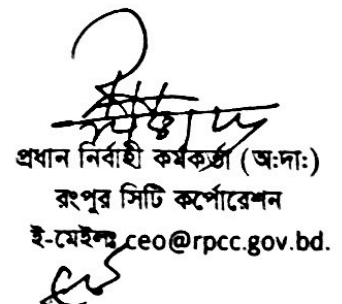 প্রধান নির্বাহী কর্মকর্তা (অ:দা:)
রংপুর সিটি কর্পোরেশন
ই-মেইলঃ ceo@rpcc.gov.bd.